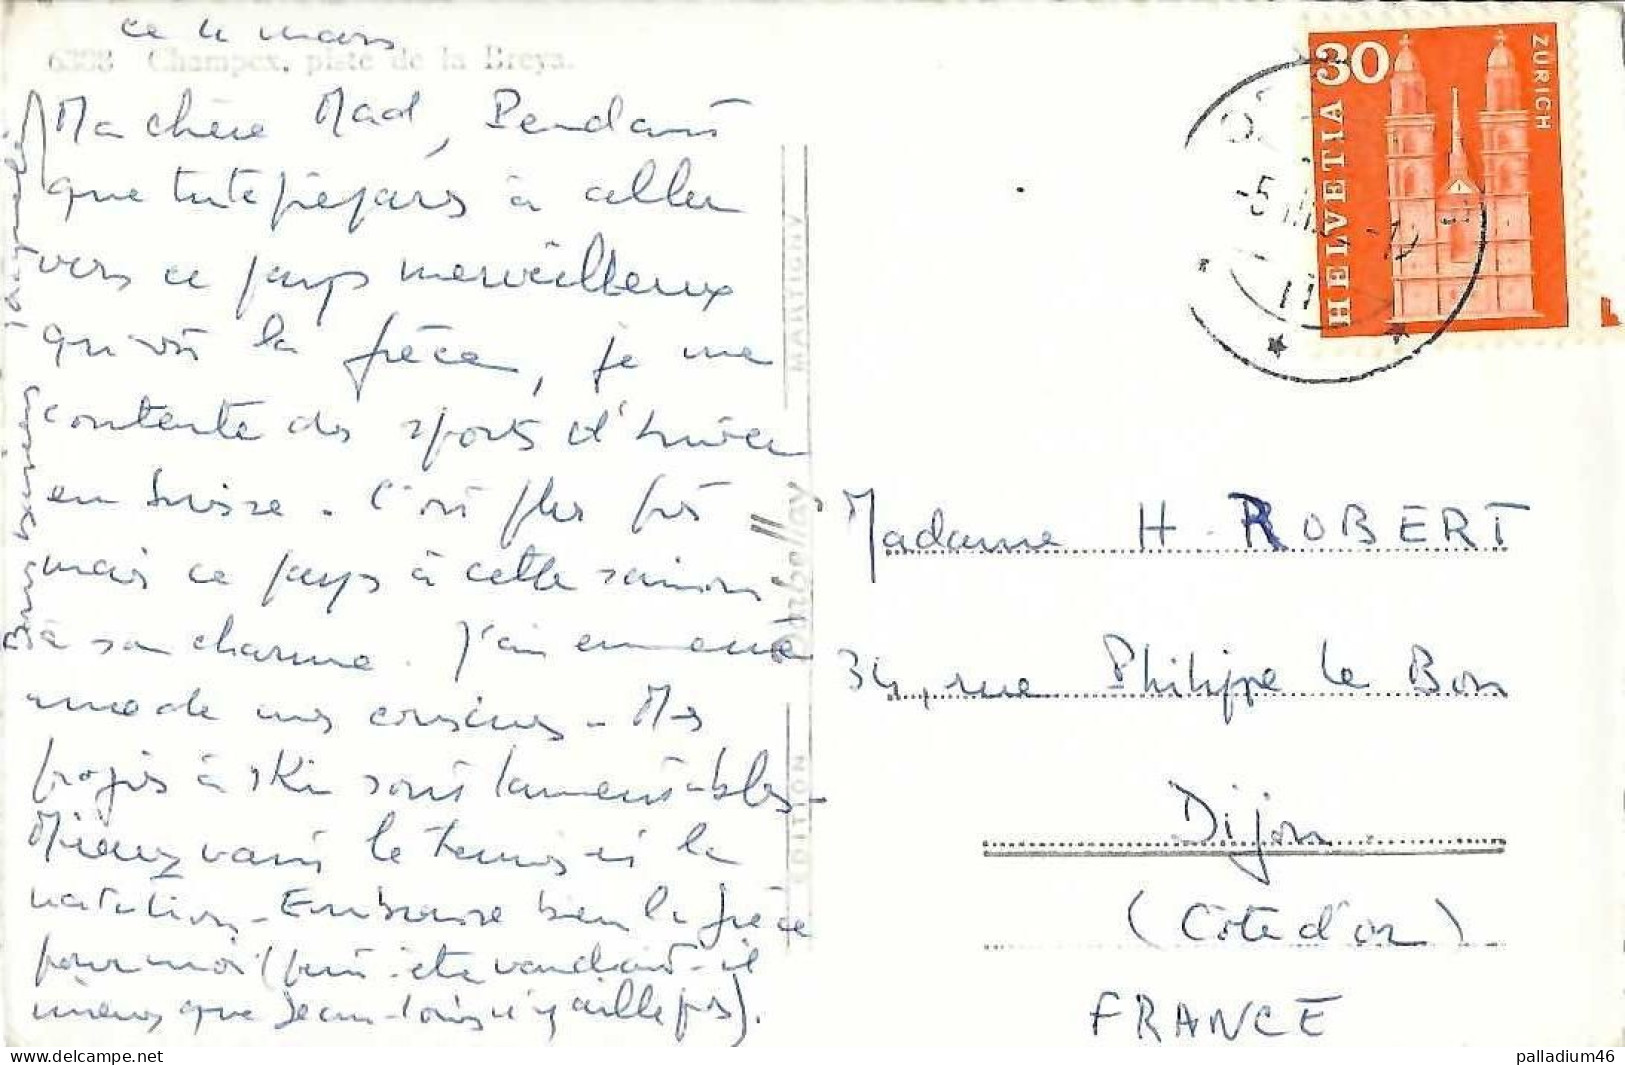 ce 4 mars
6383 Champex, piste de la Breya.
Ma chère Mad, Pendant
que tu te prépares à aller
vers ce pays merveilleux
qu'est la grèce, je me
contente des sports d'hiver
en Suisse. C'est plus près
mais ce pays à cette saison
a son charme. J'ai emmené
une de mes cousines - Mes
progrès à ski sont lamentables -
Mieux vaut le tennis et la
natation - Embrasse bien la grèce
pour moi (peut-être vaudrait-il
mieux que Jean-Louis n'y aille pas).
Bons baisers
Jacqueline
EDITION Darbellay MARTIGNY
HELVETIA 30
ZÜRICH
-5.III.
-12
Madame H. ROBERT
34, rue Philippe le Bon
Dijon
(Côte d'or)
FRANCE
palladium46